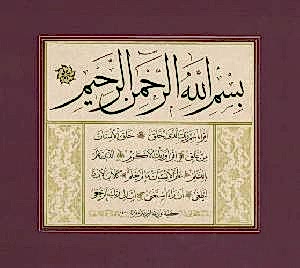 بسم الله الرحمن الرحيم
اقرأ باسم ربك الذي خلق خلق الإنسان
من علق اقرأ وربك الأكرم الذي علم
بالقلم علم الإنسان ما لم يعلم كلا إن الإنسان
ليطغى أن رآه استغنى إن إلى ربك الرجعى